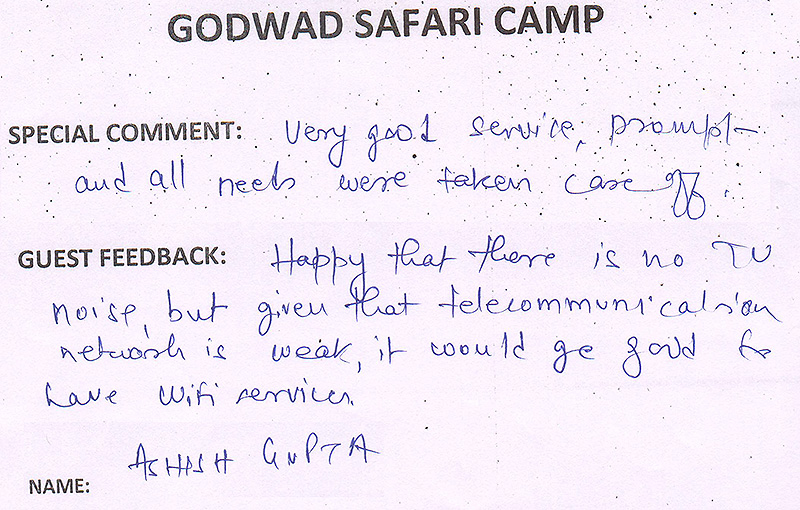 GODWAD SAFARI CAMP
SPECIAL COMMENT: Very good service, prompt
and all needs were taken care of.
GUEST FEEDBACK: Happy that there is no TV
noise, but given that telecommunication
network is weak, it would ge good to
have wifi services.
ASHISH GUPTA
NAME: